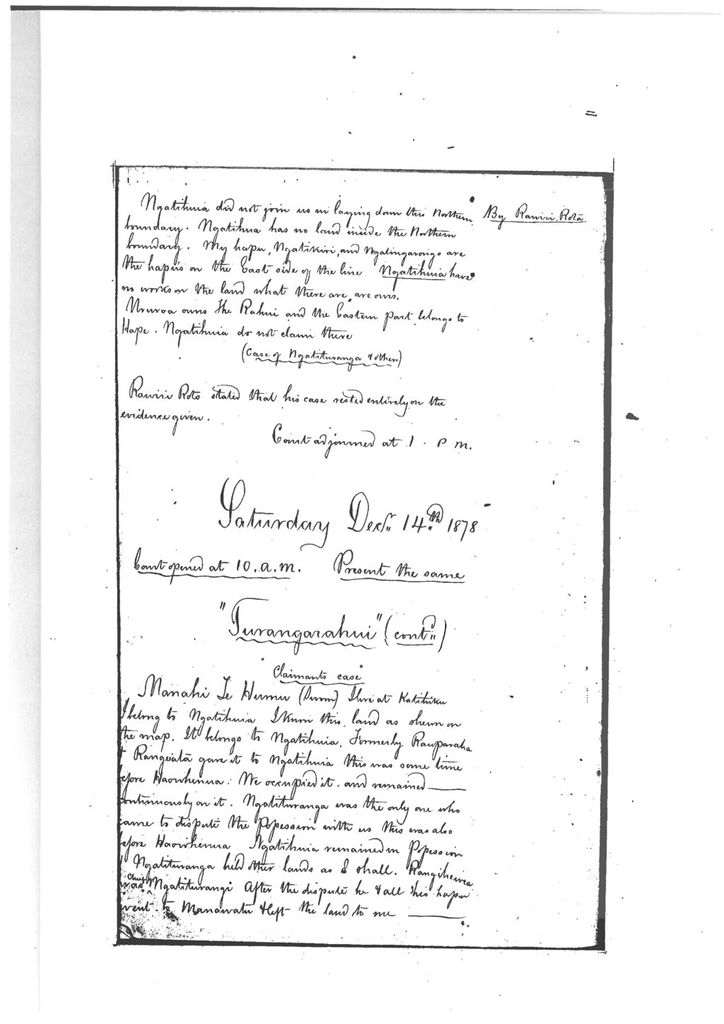 By Rawiri Rota
Ngatihuia did not join us in laying down this Northern
boundary. Ngatihua has no land inside the Northern
boundary. My hapu, Ngatikiri, and Ngatingarongo are
the hapus on the East side of the line Ngatihuia have
no works on the land what there are, are ours.
Ururoa owns the Rahui and the Eastern part belongs to
Hape. Ngatihuia do not claim there
(Case of Ngatituranga & others)
Rawiri Roto stated that his case rested entirely on the
evidence given.
Court adjourned at 1. P m.
Saturday Decr. 14th 1878
Court opened at 10. a.m. Present the same
"Turangarahui" (contd)
Claimants case
Manahi Te (Sworn) I live at Katihiku
I belong to Ngatihuia I know this land as shewn on
the map. It belongs to Ngatihuia. Formerly Rauparaha
+ Rangeiata gave it to Ngatihuia this was some time
efore Haowhenua. We occupied it and remained
ontinuously on it. Ngatituranga was the only one who
came to dispute the Possession with us this was also
efore Haowhenua Ngatihuia remained in Possession
Ngatituranga held other lands as I shall. Rangiheuea
was Chief Ngatiturangi After the dispute he & all his hapu
went to Manawatu & left the land to me